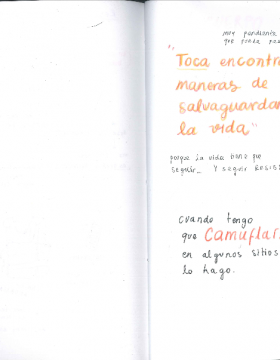 muy pendiente
que
"Toca encontra
maneras de
salvaguardar
la vida"
porque la vida tiene que
seguir_ y seguir
cuando tengo
que camuflar
en algunos sitios
lo hago.